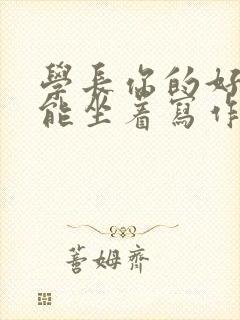 學長你的好
能坐着寫作
蕃姆齊